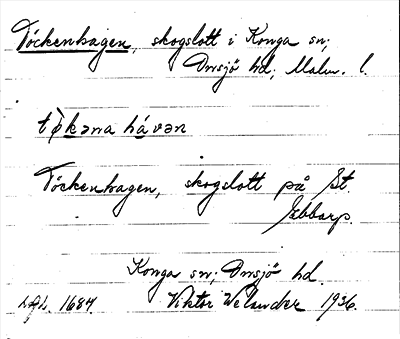 Töckenhagen, skogslott i Konga sn;
Onsjö hd, Malm. l.
tø̀kəna hávən
Töckenhagen, skogslott på St.
Ebbarp.
Konga sn; Onsjö hd.
L.A.L. 1684. Viktor Welander 1936.